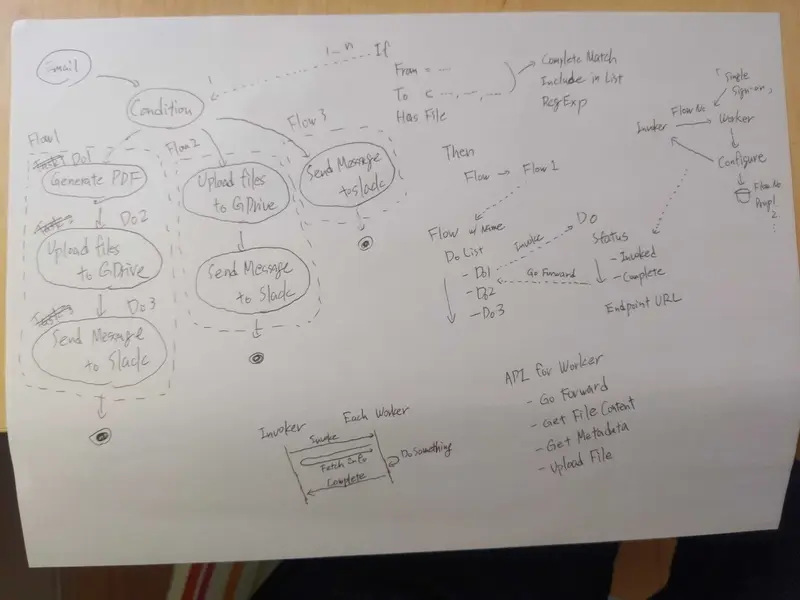 Email
Condition
1
1-n
If
From = ...
To c ..., ..., ...
Has File
Complete Match
Include in List
RegExp
Flow1
Do1
Generate PDF
Do2
Upload files
to GDrive
Do3
Send Message
to Slack
Flow2
Upload files
to GDrive
Send Message
to Slack
Flow3
Send Message
to slack
Then
Flow
Flow 1
Flow w/ Name
Do List
- Do1
- Do2
- Do3
Invoke
Go Forward
Do
Status
- Invoked
- Complete
Endpoint URL
「Single
Sign-on」
Invoker
Flow No.
Worker
Configure
Flow No
Prop1
2
:
Invoker
Each Worker
Invoke
Fetch Info
Complete
Do Something
API for Worker
- Go Forward
- Get File Content
- Get Metadata
- Upload File